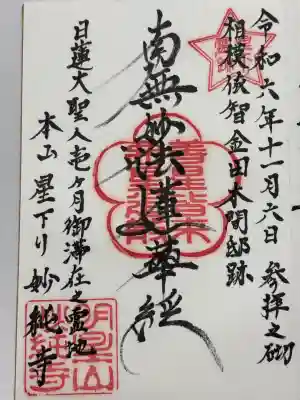 令和六年十一月六日 参拝之砌
相模依智金田本間邸跡
南無妙法蓮華経
日蓮大聖人壱ヶ月御滞在之霊地
本山星下り妙純寺
明星山
妙純寺